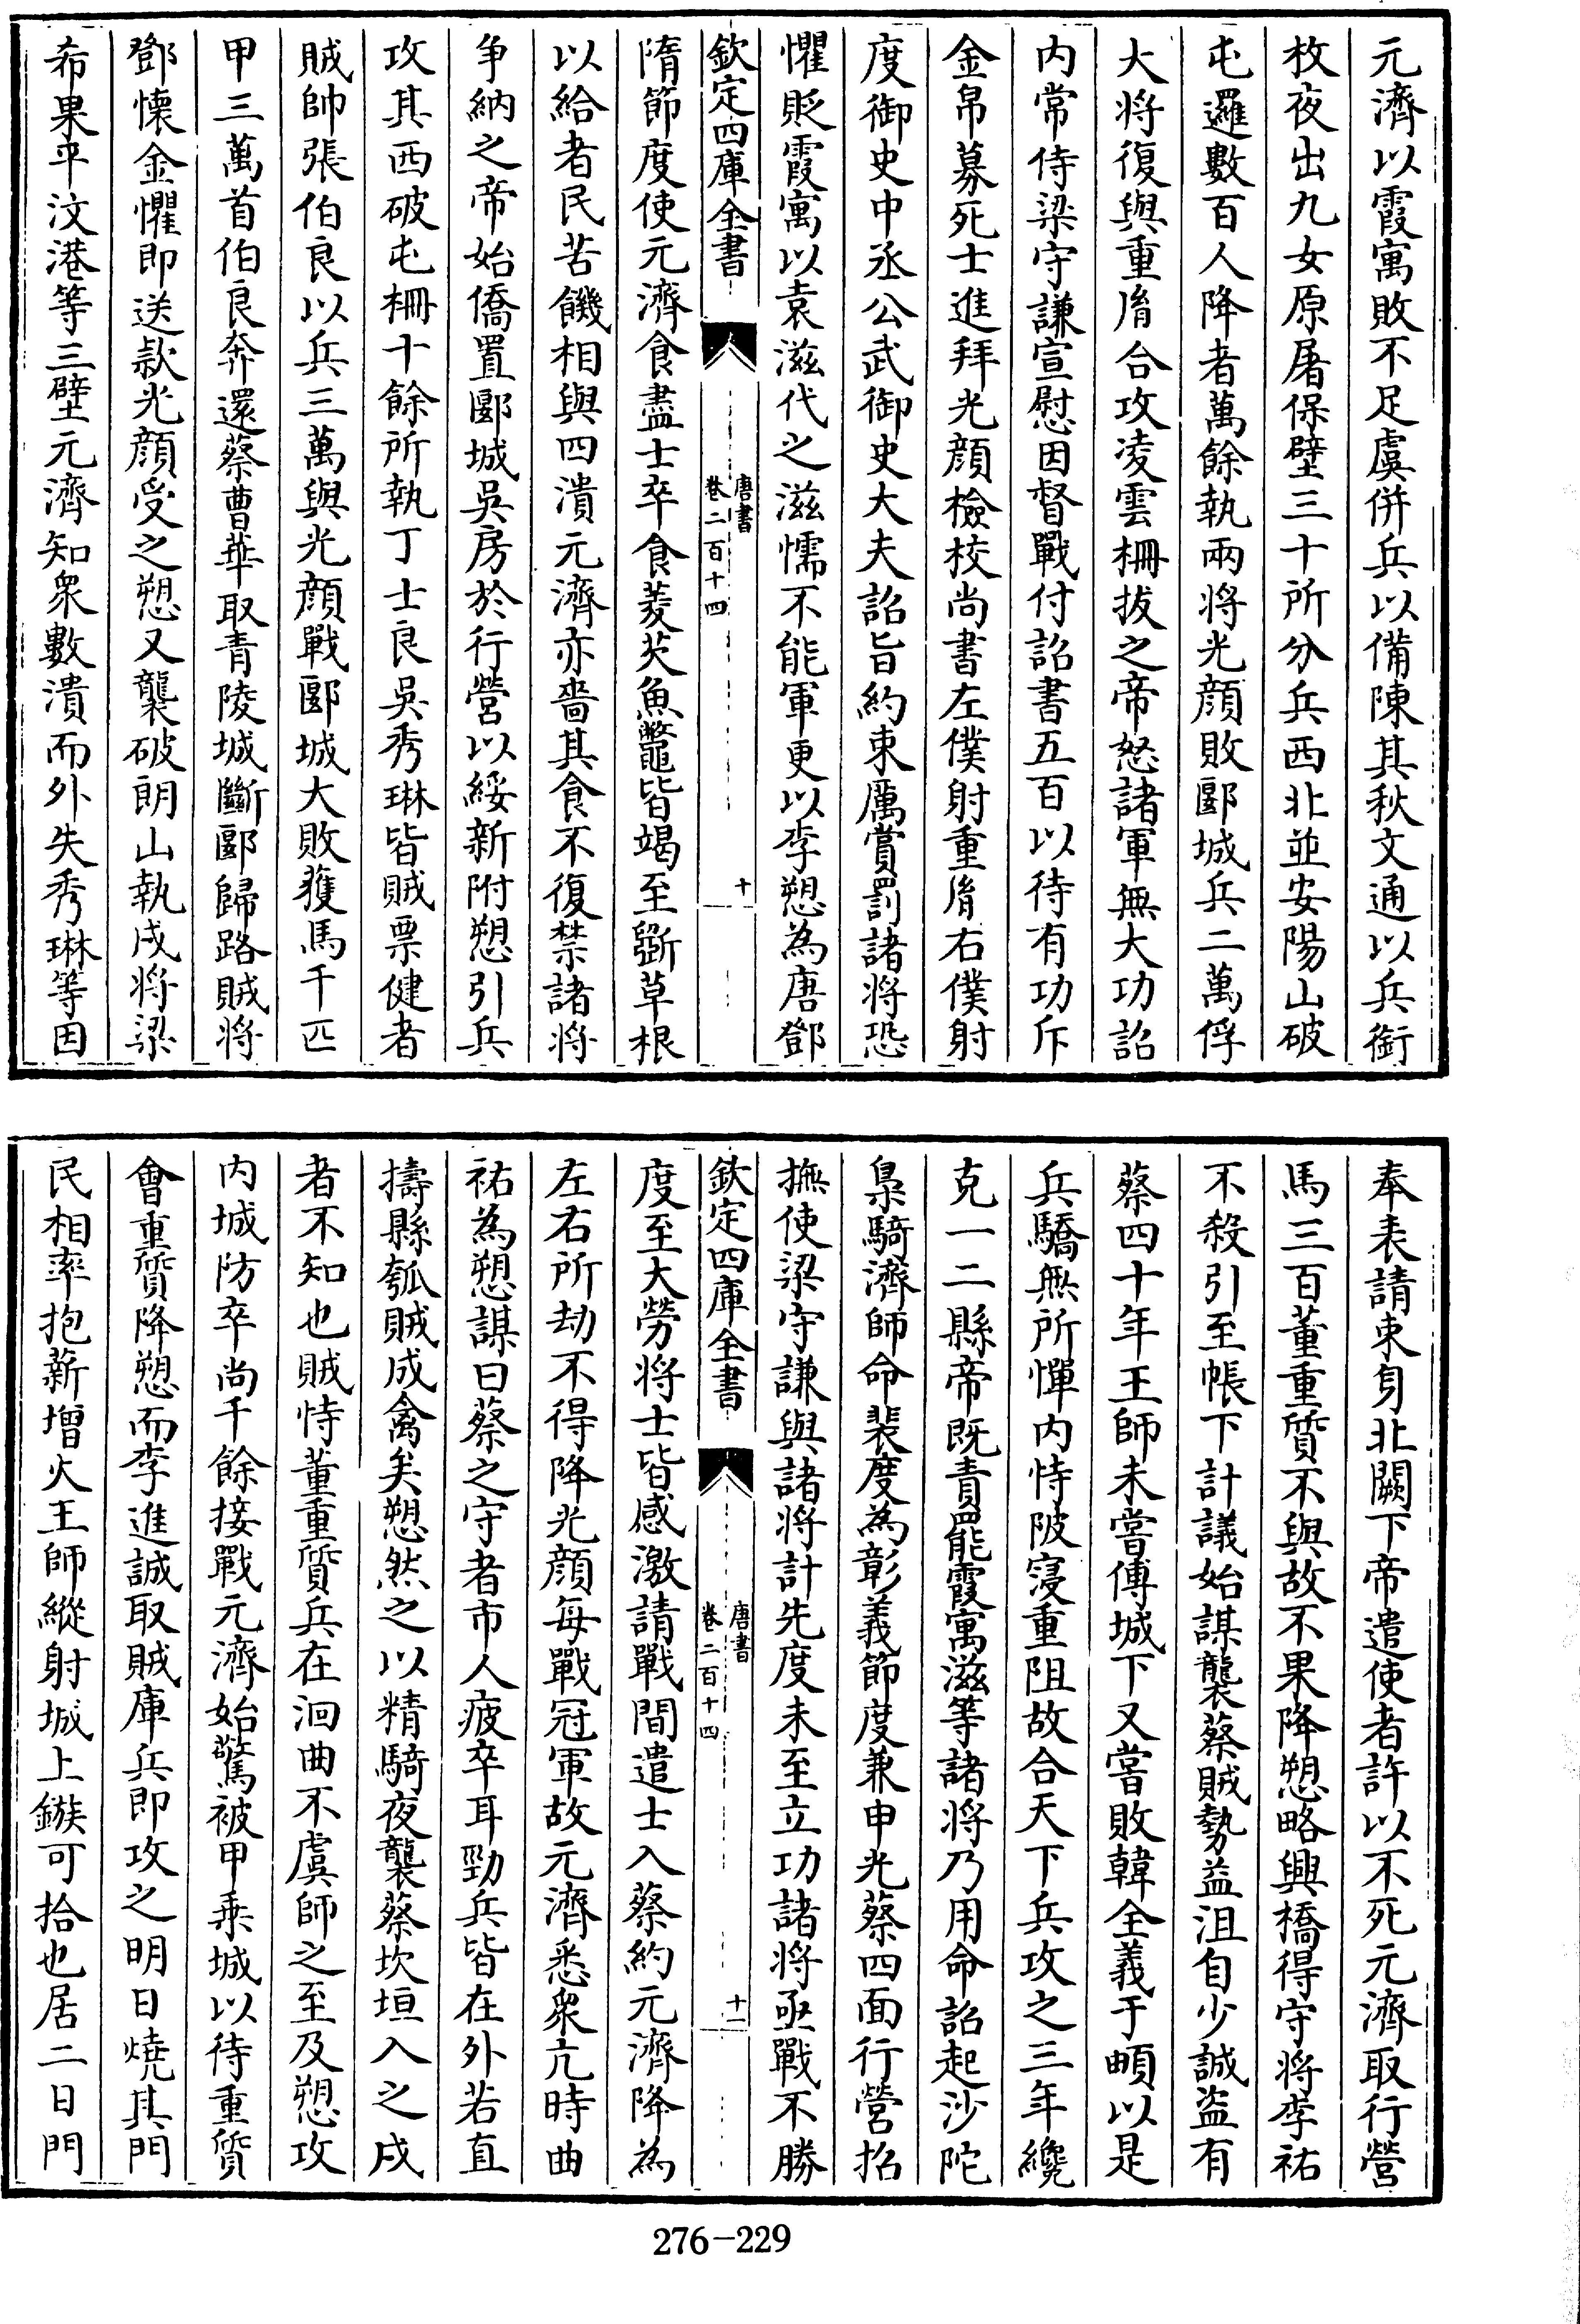 元濟以霞寓敗不足虞併兵以備陳其秋文通以兵銜
枚夜出九女原屠保壁三十所分兵西北並安陽山破
屯邏數百人降者萬餘執兩將光顔敗郾城兵二萬俘
大將復與重胤合攻凌雲柵拔之帝怒諸軍無大功詔
内常侍梁守謙宣慰因督戰付詔書五百以待有功斥
金帛募死士進拜光顔檢校尚書左僕射重胤右僕射
度御史中丞公武御史大夫詔旨約束厲賞罰諸將恐
懼貶霞寓以袁滋代之滋懦不能軍更以李愬為唐鄧
欽定四庫全書
唐書
卷二百十四
十
隋節度使元濟食盡士卒食菱芡魚鼈皆竭至斵草根
以給者民苦饑相與四潰元濟亦嗇其食不復禁諸將
爭納之帝始僑置郾城吳房於行營以綏新附愬引兵
攻其西破屯柵十餘所執丁士良吳秀琳皆賊票健者
賊帥張伯良以兵三萬與光顔戰郾城大敗獲馬千匹
甲三萬首伯良奔還蔡曹華取青陵城斷郾歸路賊將
鄧懷金懼即送款光顔受之愬又襲破朗山執戍將梁
希果平汶港等三壁元濟知衆數潰而外失秀琳等因
奉表請束身北闕下帝遣使者許以不死元濟取行營
馬三百董重質不與故不果降愬略興橋得守將李祐
不殺引至帳下計議始謀襲蔡賊勢益沮自少誠盜有
蔡四十年王師未嘗傅城下又嘗敗韓全義于頔以是
兵驕無所憚内恃陂寖重阻故合天下兵攻之三年纔
克一二縣帝既責罷霞寓滋等諸將乃用命詔起沙陀
梟騎濟師命裴度為彰義節度兼申光蔡四面行營招
撫使梁守謙與諸將計先度未至立功諸將亟戰不勝
欽定四庫全書
唐書
卷二百十四
十一
度至大勞將士皆感激請戰間遣士入蔡約元濟降為
左右所劫不得降光顔每戰冠軍故元濟悉衆亢時曲
祐為愬謀曰蔡之守者市人疲卒耳勁兵皆在外若直
擣縣瓠賊成禽矣愬然之以精騎夜襲蔡坎垣入之戍
者不知也賊恃董重質兵在洄曲不虞師之至及愬攻
内城防卒尚千餘接戰元濟始驚被甲乘城以待重質
會重質降愬而李進誠取賊庫兵即攻之明日燒其門
民相率抱薪增火王師縱射城上鏃可拾也居二日門
276-229